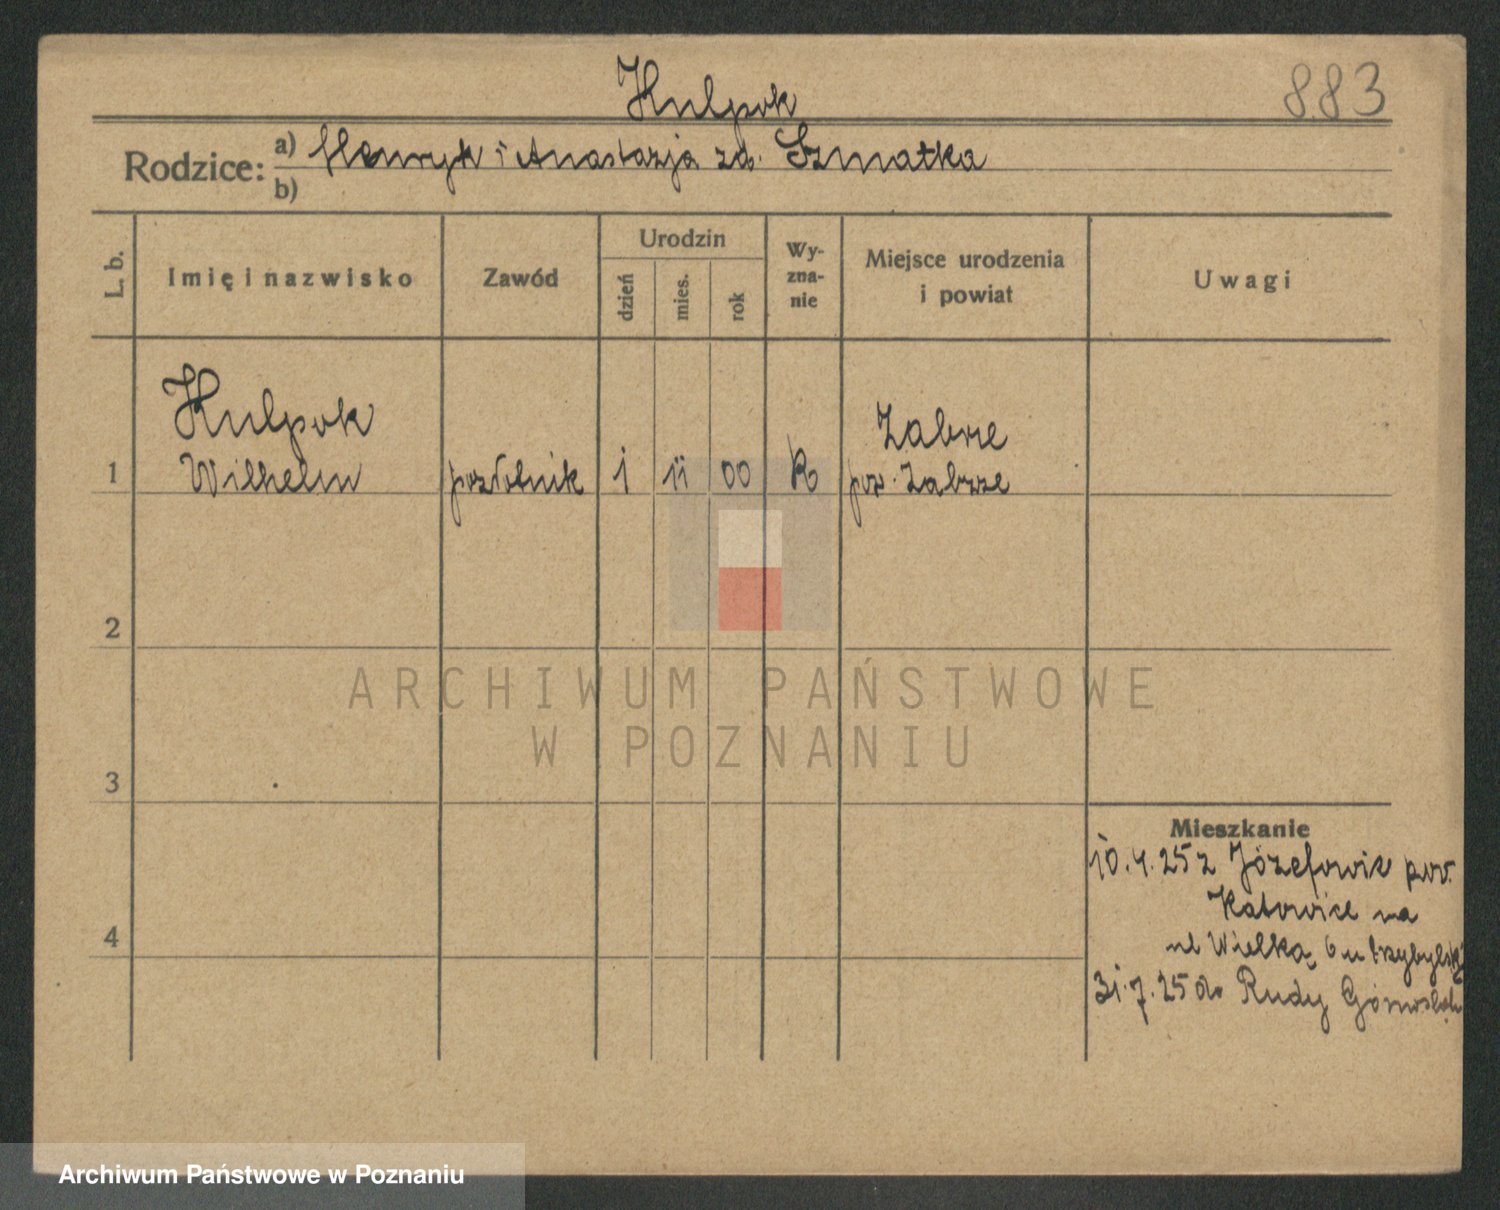 Kulpok
883
Rodzice: a) Henryk i Anastazja zd. Szmatka
b)
L. b.
Imię i nazwisko
Zawód
Urodzin
dzień
mies.
rok
Wy-
zna-
nie
Miejsce urodzenia
i powiat
Uwagi
Kulpok
Zabrze
1 Wilhelm pozłotnik 1 11 00 R pow. Zabrze
2
3
4
Mieszkanie
10.4.25 z Józefowic pow.
Katowice na
ul Wielką 6 u
31.7.25 do Rudy
ARCHIWUM PAŃSTWOWE
W POZNANIU
Archiwum Państwowe w Poznaniu